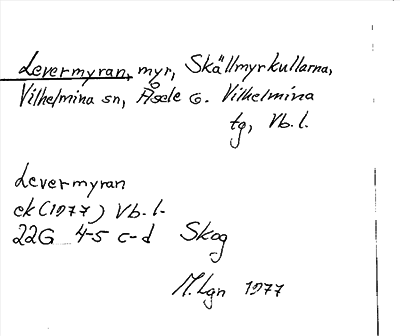 Levermyran, myr, Skällmyrkullarna,
Vilhelmina sn, Åsele G. Vilhelmina
tg, Vb. l.
Levermyran
ek (1977) Vb. l.
22G 4-5 c-d Skog
M. Lgn 1977